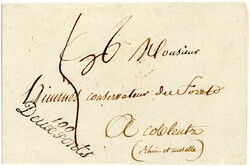 Monsieur
conservateur des Forets
A coblentz
(Rhin et moselle)
100
Deux-Ponts